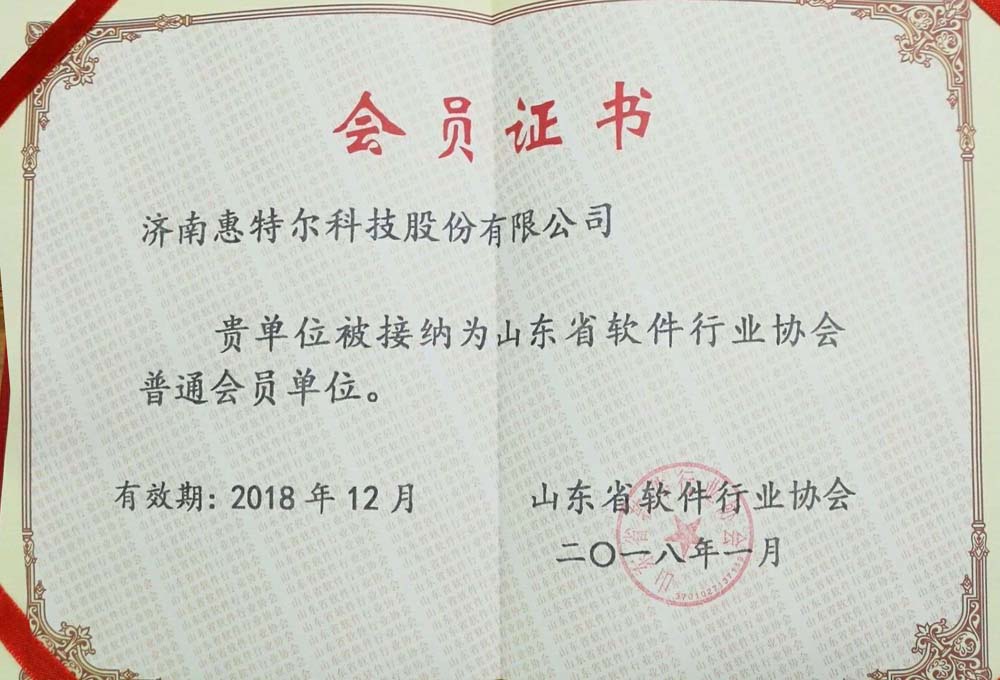 会员证书
济南惠特尔科技股份有限公司
贵单位被接纳为山东省软件行业协会
普通会员单位。
有效期：2018年12月
山东省软件行业协会
二〇一八年一月